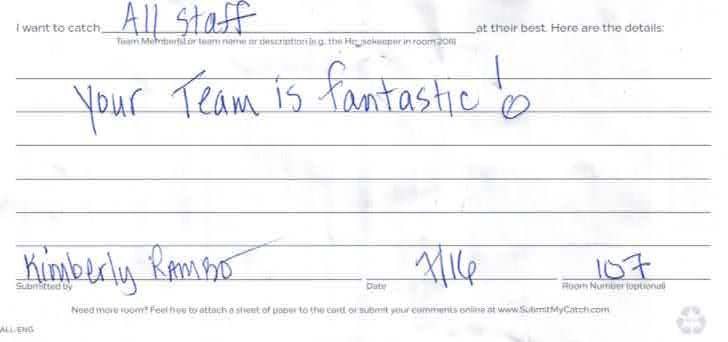 I want to catch All Staff at their best. Here are the details:
Team Member(s) or team name or description (e.g. the Housekeeper in room 206)
Your Team is fantastic!
Kimberly Rambo 7/16 107
Submitted by Date Room Number (optional)
Need more room? Feel free to attach a sheet of paper to the card or submit your comments online at www.SubmitMyCatch.com
ALL/ENG